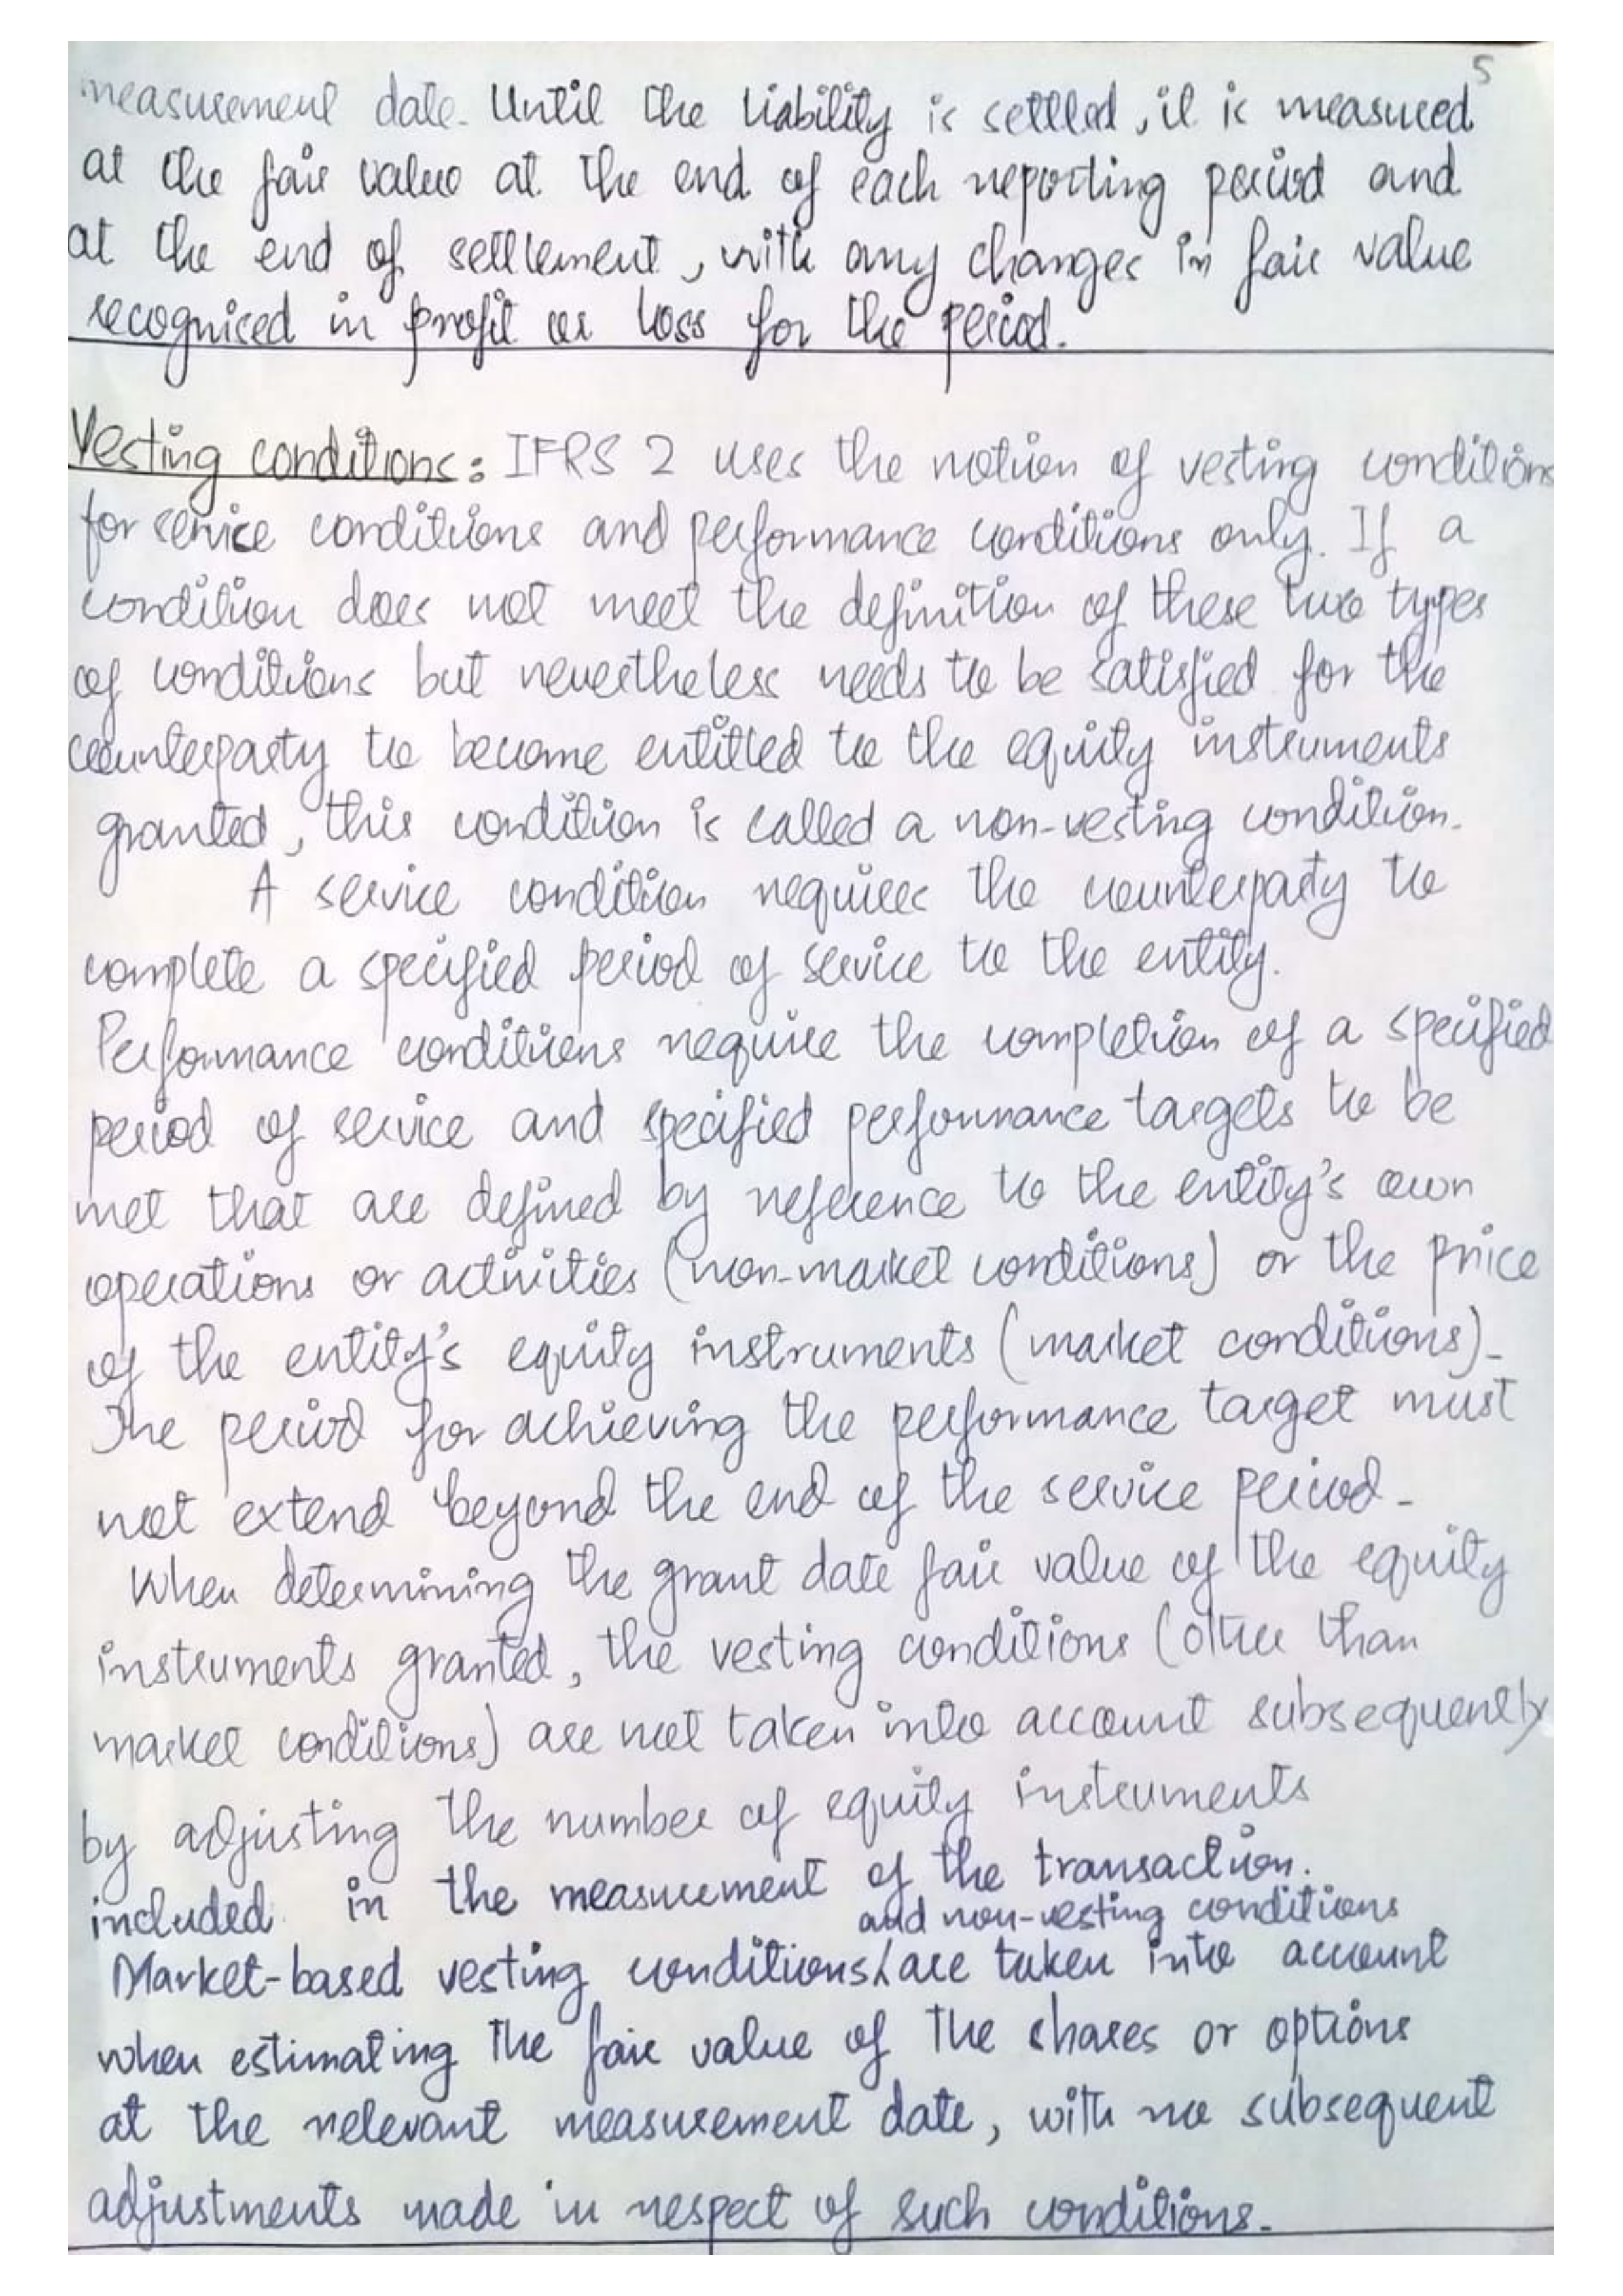 5
measurement date. Until the liability is settled, it is measured
at the fair value at the end of each reporting period and
at the end of settlement, with any changes in fair value
recognised in profit or loss for the period.
Vesting conditions: IFRS 2 uses the notion of vesting conditions
for service conditions and performance conditions only. If a
condition does not meet the definition of these two types
of conditions but nevertheless needs to be satisfied for the
counterparty to become entitled to the equity instruments
granted, this condition is called a non-vesting condition.
A service condition requires the counterparty to
complete a specified period of service to the entity.
Performance conditions require the completion of a specified
period of service and specified performance targets to be
met that are defined by reference to the entity's own
operations or activities (non-market conditions) or the price
of the entity's equity instruments (market conditions).
The period for achieving the performance target must
not extend beyond the end of the service period.
When determining the grant date fair value of the equity
instruments granted, the vesting conditions (other than
market conditions) are not taken into account subsequently
by adjusting the number of equity instruments
included in the measurement of the transaction.
and non-vesting conditions
Market-based vesting conditions/are taken into account
when estimating the fair value of the shares or options
at the relevant measurement date, with no subsequent
adjustments made in respect of such conditions.